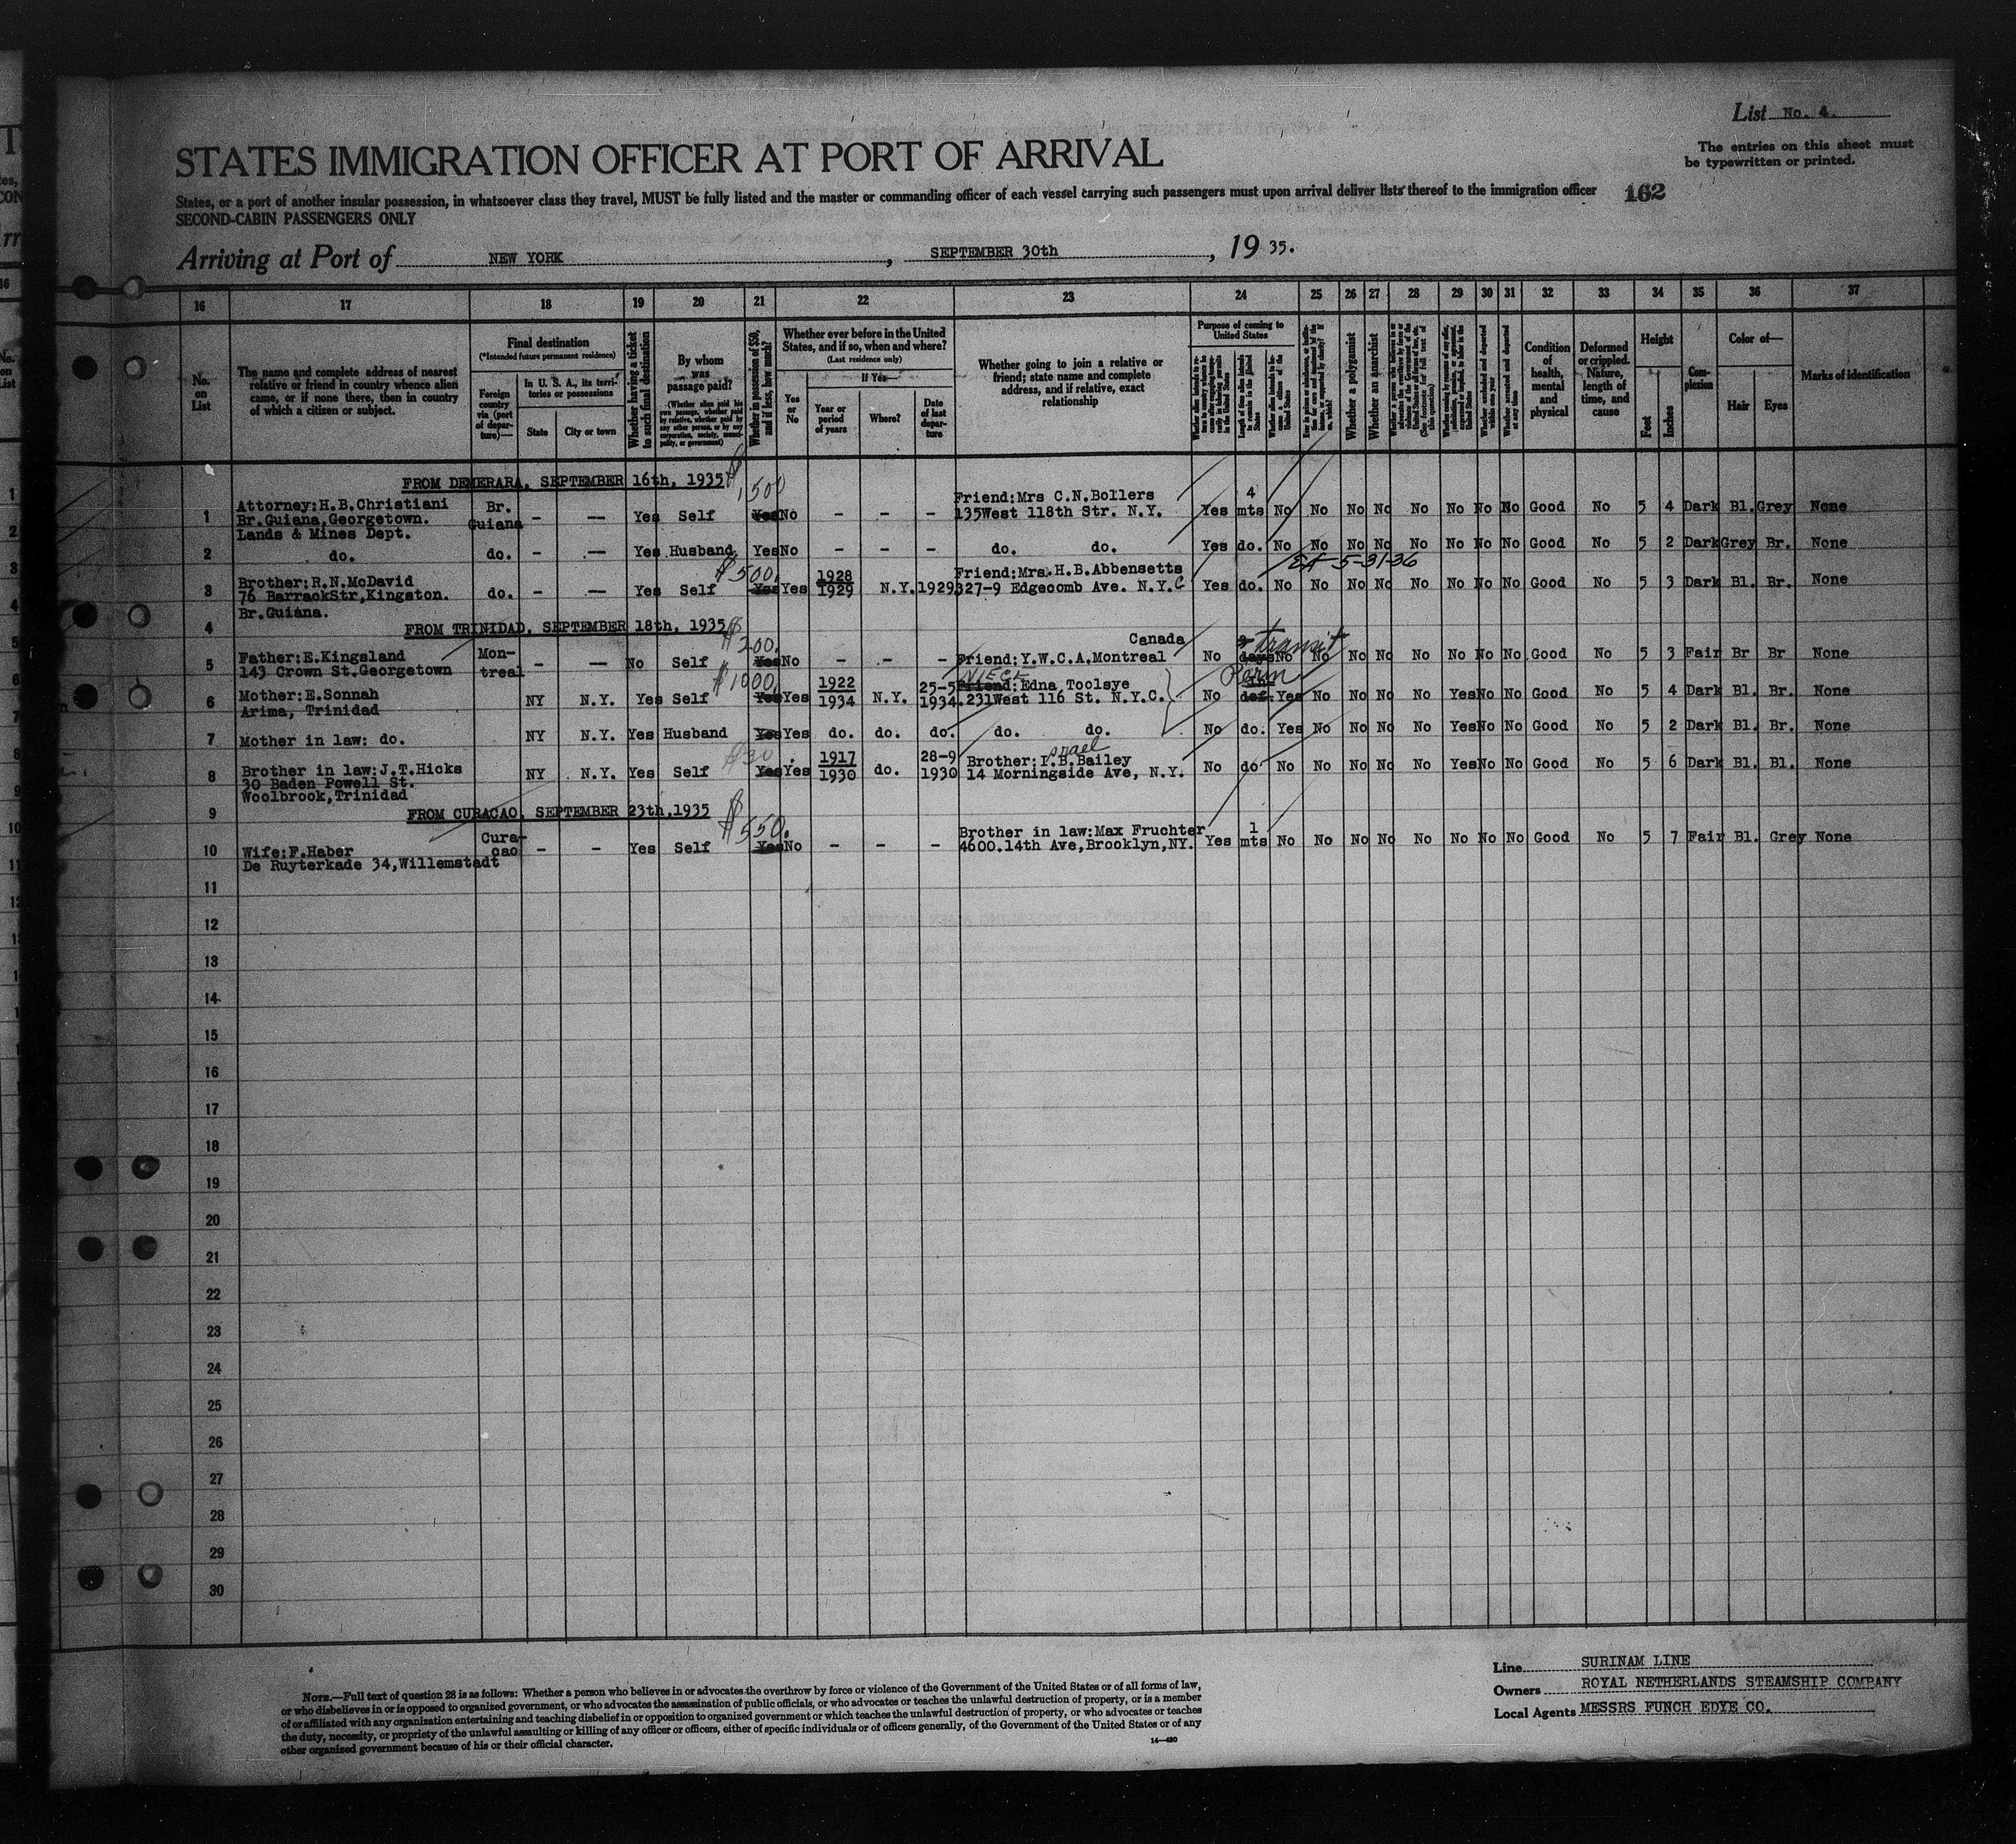 List No. 4.
The entries on this sheet must
be typewritten or printed.
STATES IMMIGRATION OFFICER AT PORT OF ARRIVAL
States, or a port of another insular possession, in whatsoever class they travel, MUST be fully listed and the master or commanding officer of each vessel carrying such passengers must upon arrival deliver lists thereof to the immigration officer
162
SECOND-CABIN PASSENGERS ONLY
Arriving at Port of NEW YORK, SEPTEMBER 30th, 1935.
16 17 18 19 20 21 22 23 24 25 26 27 28 29 30 31 32 33 34 35 36 37
No. on List
The name and complete address of nearest
relative or friend in country whence alien
came, or if none there, then in country
of which a citizen or subject.
Final destination
(*Intended future permanent residence)
Foreign country via (port of departure)—
In U. S. A., its territories or possessions
State
City or town
Whether having a ticket to such final destination
By whom was passage paid?
(Whether alien paid his own passage, whether paid by relative, whether paid by any other person, or by any corporation, society, municipality, or government)
Whether in possession of $50, and if less, how much?
Whether ever before in the United States, and if so, when and where?
(Last residence only)
If Yes—
Yes or No
Year or period of years
Where?
Date of last departure
Whether going to join a relative or
friend; state name and complete
address, and if relative, exact
relationship
Purpose of coming to United States
Length of time alien intends to remain in the United States
Whether alien intends to become a citizen of the United States
Whether a polygamist
Whether an anarchist
Whether excluded and deported within one year
Whether arrested and deported at any time
Condition of health, mental and physical
Deformed or crippled. Nature, length of time, and cause
Height
Feet
Inches
Complexion
Color of—
Hair
Eyes
Marks of identification
FROM DEMERARA, SEPTEMBER 16th, 1935
$1500
1 Attorney:H.B.Christiani Br. Guiana - — Yes Self Yes No - - - Friend:Mrs C.N.Bollers Yes 4 mts No No No No No No No No Good No 5 4 Dark Bl. Grey None
Br.Guiana,Georgetown. 135West 118th Str. N.Y.
Lands & Mines Dept.
2 do. do. - — Yes Husband Yes No - - - do. do. Yes do. No No No No No No No No Good No 5 2 Dark Grey Br. None
$500. Ext-5-31-36
3 Brother:R.N.McDavid do. - — Yes Self Yes Yes 1928 1929 N.Y. 1929 Friend:Mrs.H.B.Abbensetts Yes do. No No No No No No No No Good No 5 3 Dark Bl. Br. None
76 BarrackStr,Kingston. 327-9 Edgecomb Ave. N.Y.C
Br.Guiana.
4 FROM TRINIDAD, SEPTEMBER 18th, 1935
$200. Canada transit
5 Father:E.Kingsland Montreal - — No Self Yes No - - - Friend:Y.W.C.A.Montreal No days No No No No No No No No Good No 5 3 Fair Br Br None
143 Crown St.Georgetown
$1000 NIECE Perm
6 Mother:E.Sonnah NY N.Y. Yes Self Yes Yes 1922 1934 N.Y. 25-5 1934. Friend:Edna Toolsye No def. Yes No No No No Yes No No Good No 5 4 Dark Bl. Br. None
Arima, Trinidad 231West 116 St. N.Y.C.
7 Mother in law: do. NY N.Y. Yes Husband Yes Yes do. do. do. do. do. No do. Yes No No No No Yes No No Good No 5 2 Dark Bl. Br. None
$30. Israel
8 Brother in law:J.T.Hicks NY N.Y. Yes Self Yes Yes 1917 1930 do. 28-9 1930 Brother:I.B.Bailey No do No No No No No Yes No No Good No 5 6 Dark Bl. Bl. None
30 Baden Powell St. 14 Morningside Ave, N.Y.
Woolbrook,Trinidad
9 FROM CURACAO, SEPTEMBER 23th,1935
$550.
10 Wife:F.Haber Curacao - - Yes Self Yes No - - - Brother in law:Max Fruchter Yes 1 mts No No No No No No No No Good No 5 7 Fair Bl. Grey None
De Ruyterkade 34,Willemstadt 4600.14th Ave,Brooklyn,NY.
11
12
13
14
15
16
17
18
19
20
21
22
23
24
25
26
27
28
29
30
NOTE.—Full text of question 28 is as follows: Whether a person who believes in or advocates the overthrow by force or violence of the Government of the United States or of all forms of law,
or who disbelieves in or is opposed to organized government, or who advocates the assassination of public officials, or who advocates or teaches the unlawful destruction of property, or is a member
of or affiliated with any organization entertaining and teaching disbelief in or opposition to organized government or which teaches the unlawful destruction of property, or who advocates or teaches
the duty, necessity, or propriety of the unlawful assaulting or killing of any officer or officers, either of specific individuals or of officers generally, of the Government of the United States or of any
other organized government because of his or their official character.
14—420
Line SURINAM LINE
Owners ROYAL NETHERLANDS STEAMSHIP COMPANY
Local Agents MESSRS FUNCH EDYE CO.